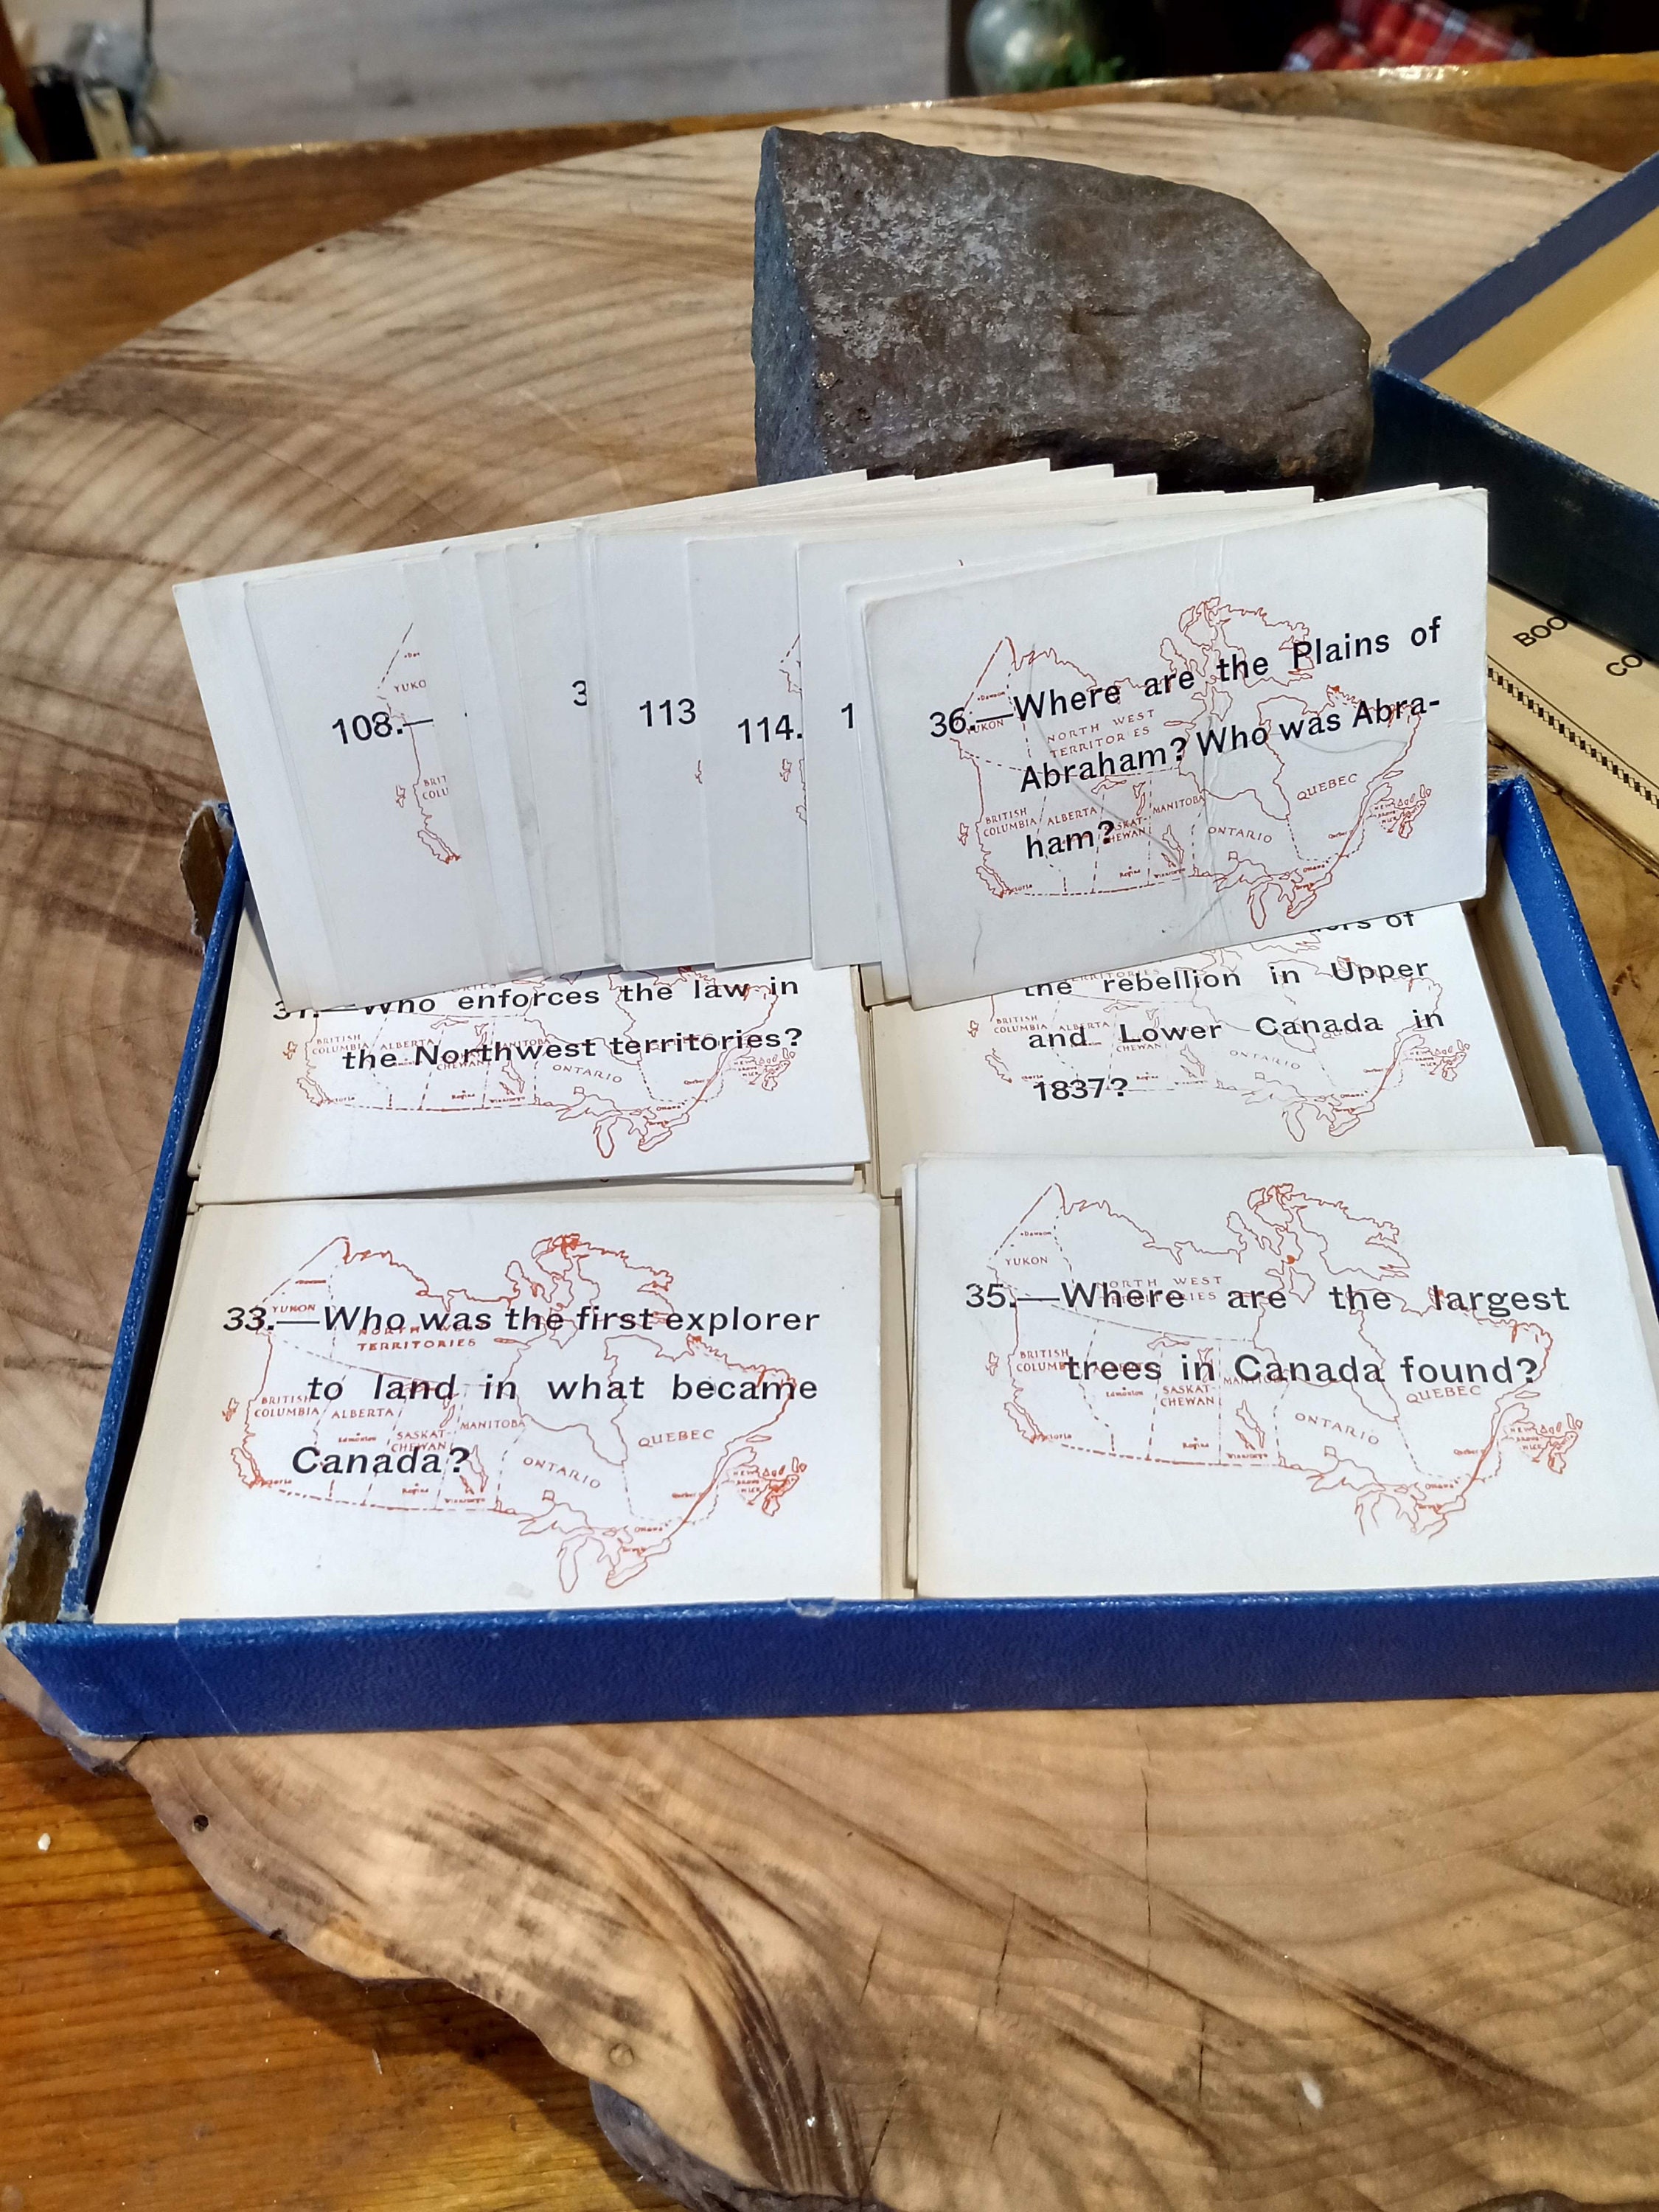 BOO
CO
108.—
YUKO
BRIT
COLU
3
113
114.
1
36.—Where are the Plains of
Abraham? Who was Abra-
ham?
Dawson
YUKON
NORTH WEST
TERRITORIES
BRITISH
COLUMBIA
ALBERTA
SASKAT-
CHEWAN
MANITOBA
ONTARIO
QUEBEC
31.—Who enforces the law in
the Northwest territories?
BRITISH
COLUMBIA
ALBERTA
CHEWAN
MANITOBA
ONTARIO
of
the rebellion in Upper
and Lower Canada in
1837?
TERRITORIES
BRITISH
COLUMBIA
ALBERTA
CHEWAN
ONTARIO
33.—Who was the first explorer
to land in what became
Canada?
YUKON
NORTH WEST
TERRITORIES
BRITISH
COLUMBIA
ALBERTA
SASKAT-
CHEWAN
MANITOBA
ONTARIO
QUEBEC
35.—Where are the largest
trees in Canada found?
Dawson
YUKON
NORTH WEST
TERRITORIES
BRITISH
COLUMBIA
SASKAT-
CHEWAN
MANITOBA
ONTARIO
QUEBEC